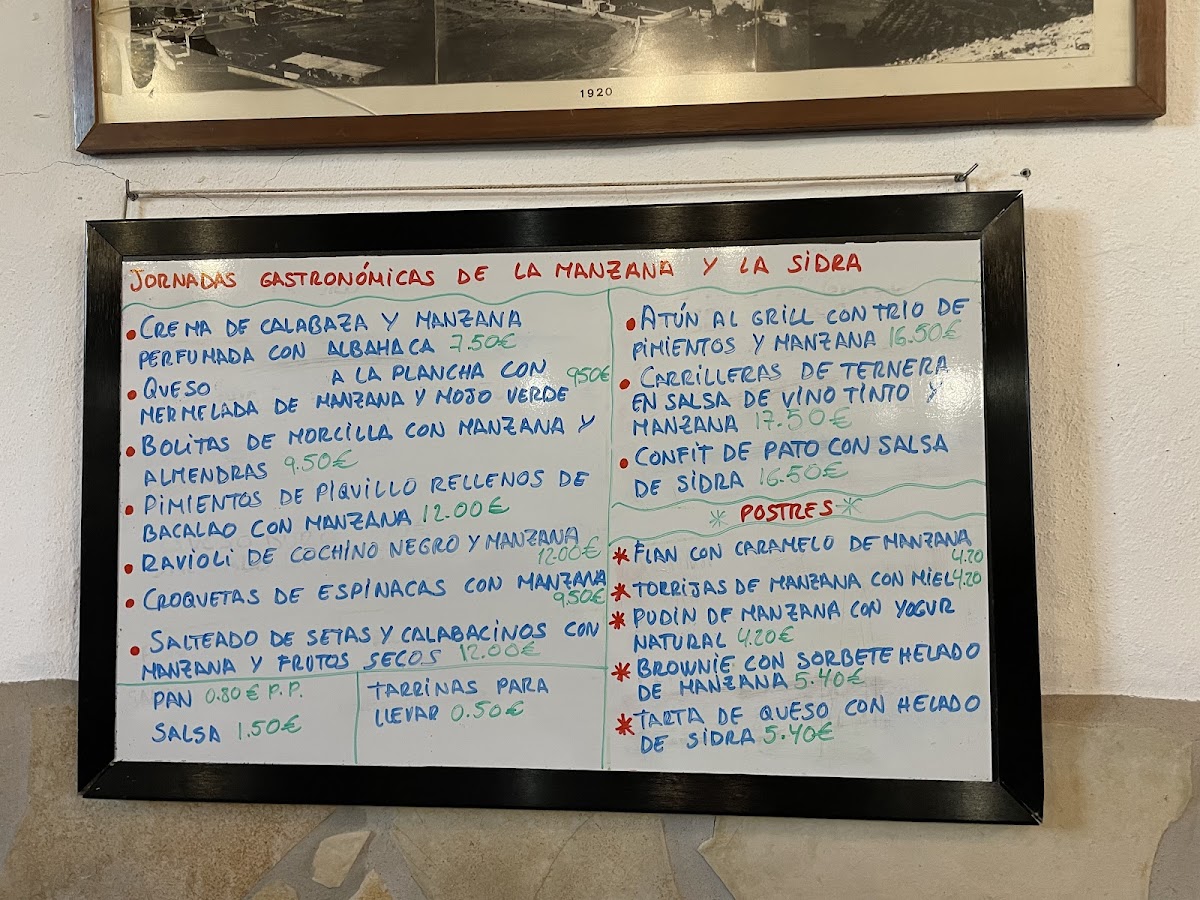 1920
JORNADAS GASTRONÓMICAS DE LA MANZANA Y LA SIDRA
• CREMA DE CALABAZA Y MANZANA
PERFUMADA CON ALBAHACA 7.50€
• QUESO A LA PLANCHA CON 9.50€
MERMELADA DE MANZANA Y MOJO VERDE
• BOLITAS DE MORCILLA CON MANZANA Y
ALMENDRAS 9.50€
• PIMIENTOS DE PIQUILLO RELLENOS DE
BACALAO CON MANZANA 12.00€
• RAVIOLI DE COCHINO NEGRO Y MANZANA
12.00€
• CROQUETAS DE ESPINACAS CON MANZANA
9.50€
• SALTEADO DE SETAS Y CALABACINOS CON
MANZANA Y FRUTOS SECOS 12.00€
PAN 0.80€ P.P.
SALSA 1.50€
TARRINAS PARA
LLEVAR 0.50€
• ATÚN AL GRILL CON TRIO DE
PIMIENTOS Y MANZANA 16.50€
• CARRILLERAS DE TERNERA
EN SALSA DE VINO TINTO Y
MANZANA 17.50€
• CONFIT DE PATO CON SALSA
DE SIDRA 16.50€
* POSTRES *
* FLAN CON CARAMELO DE MANZANA
4.20
* TORRIJAS DE MANZANA CON MIEL 4.20
* PUDIN DE MANZANA CON YOGUR
NATURAL 4.20€
* BROWNIE CON SORBETE HELADO
DE MANZANA 5.40€
* TARTA DE QUESO CON HELADO
DE SIDRA 5.40€